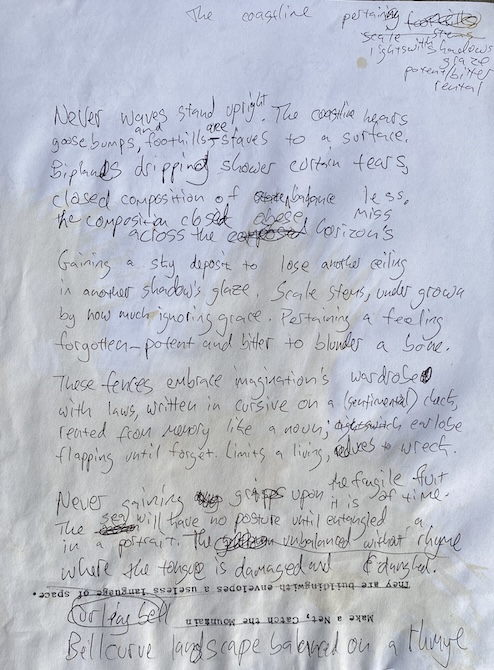 The coastline pertaining
scale stems
lightswitch shadows
glaze
potent/bitter
rental
Never waves stand upright. The coastline hears
goosebumps, and foothills are staves to a surface.
dripping shower curtain tears,
closed composition of balance less,
the composition closed abese miss
across the horizon's
Gaining a sky deposit to lose another ceiling
in another shadow's glaze. Scale stems, under grown
by how much ignoring grace. Pertaining a feeling
forgotten—potent and bitter to blunder a bone.
These fences embrace imagination's wardrobe
with laws, written in cursive on a (sentimental) duct,
rented from memory like a noun; lightswitch earlobe
flapping until forget. Limits a living, to wreck.
Never gaining grips upon the fragile fruit
it is of time.
The sea will have no posture until entangled a
in a portrait. The unbalanced without rhyme
where the tongue is damaged and dangled.
They are building with envelopes a useless language of space.
Make a Net, Catch the Mountain
Bellcurve landscape balanced on a thyme